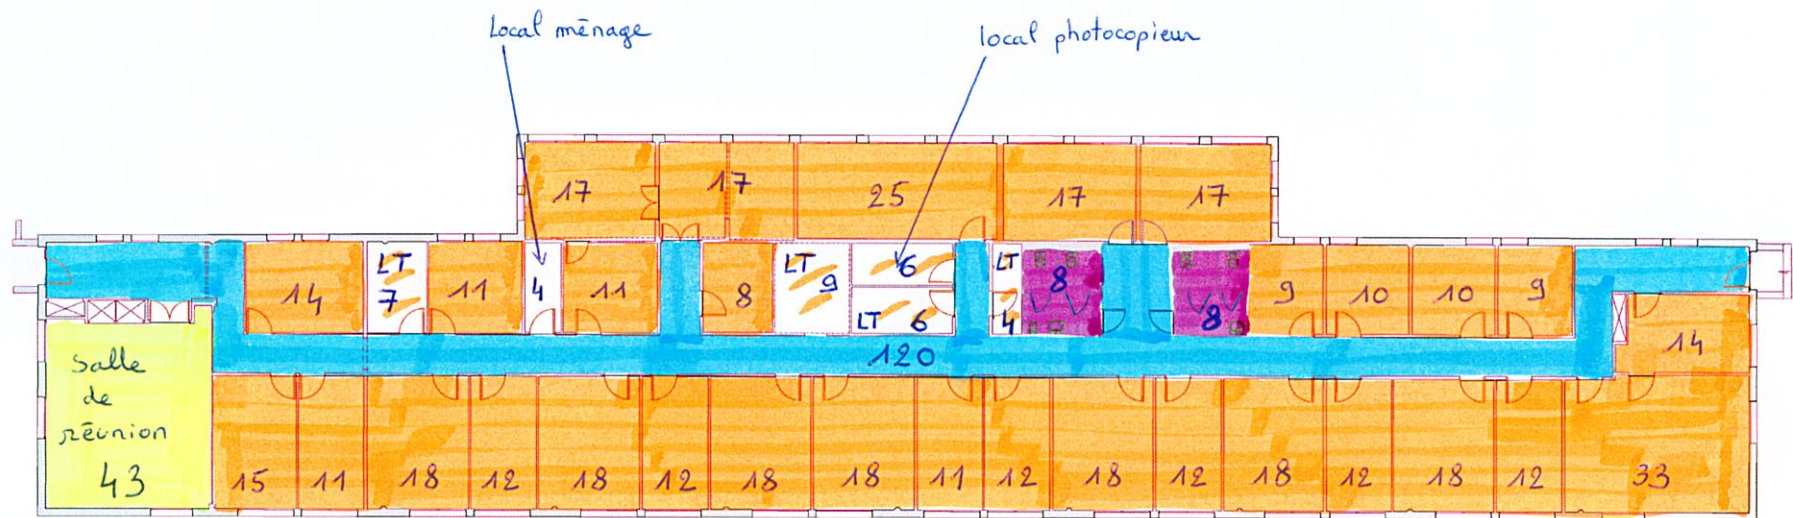 Local ménage
local photocopieur
17
17
25
17
17
14
LT
7
11
4
11
8
LT
9
6
LT 6
LT
4
8
8
9
10
10
9
14
120
Salle
de
réunion
43
15
11
18
12
18
12
18
18
11
12
18
12
18
12
18
12
33